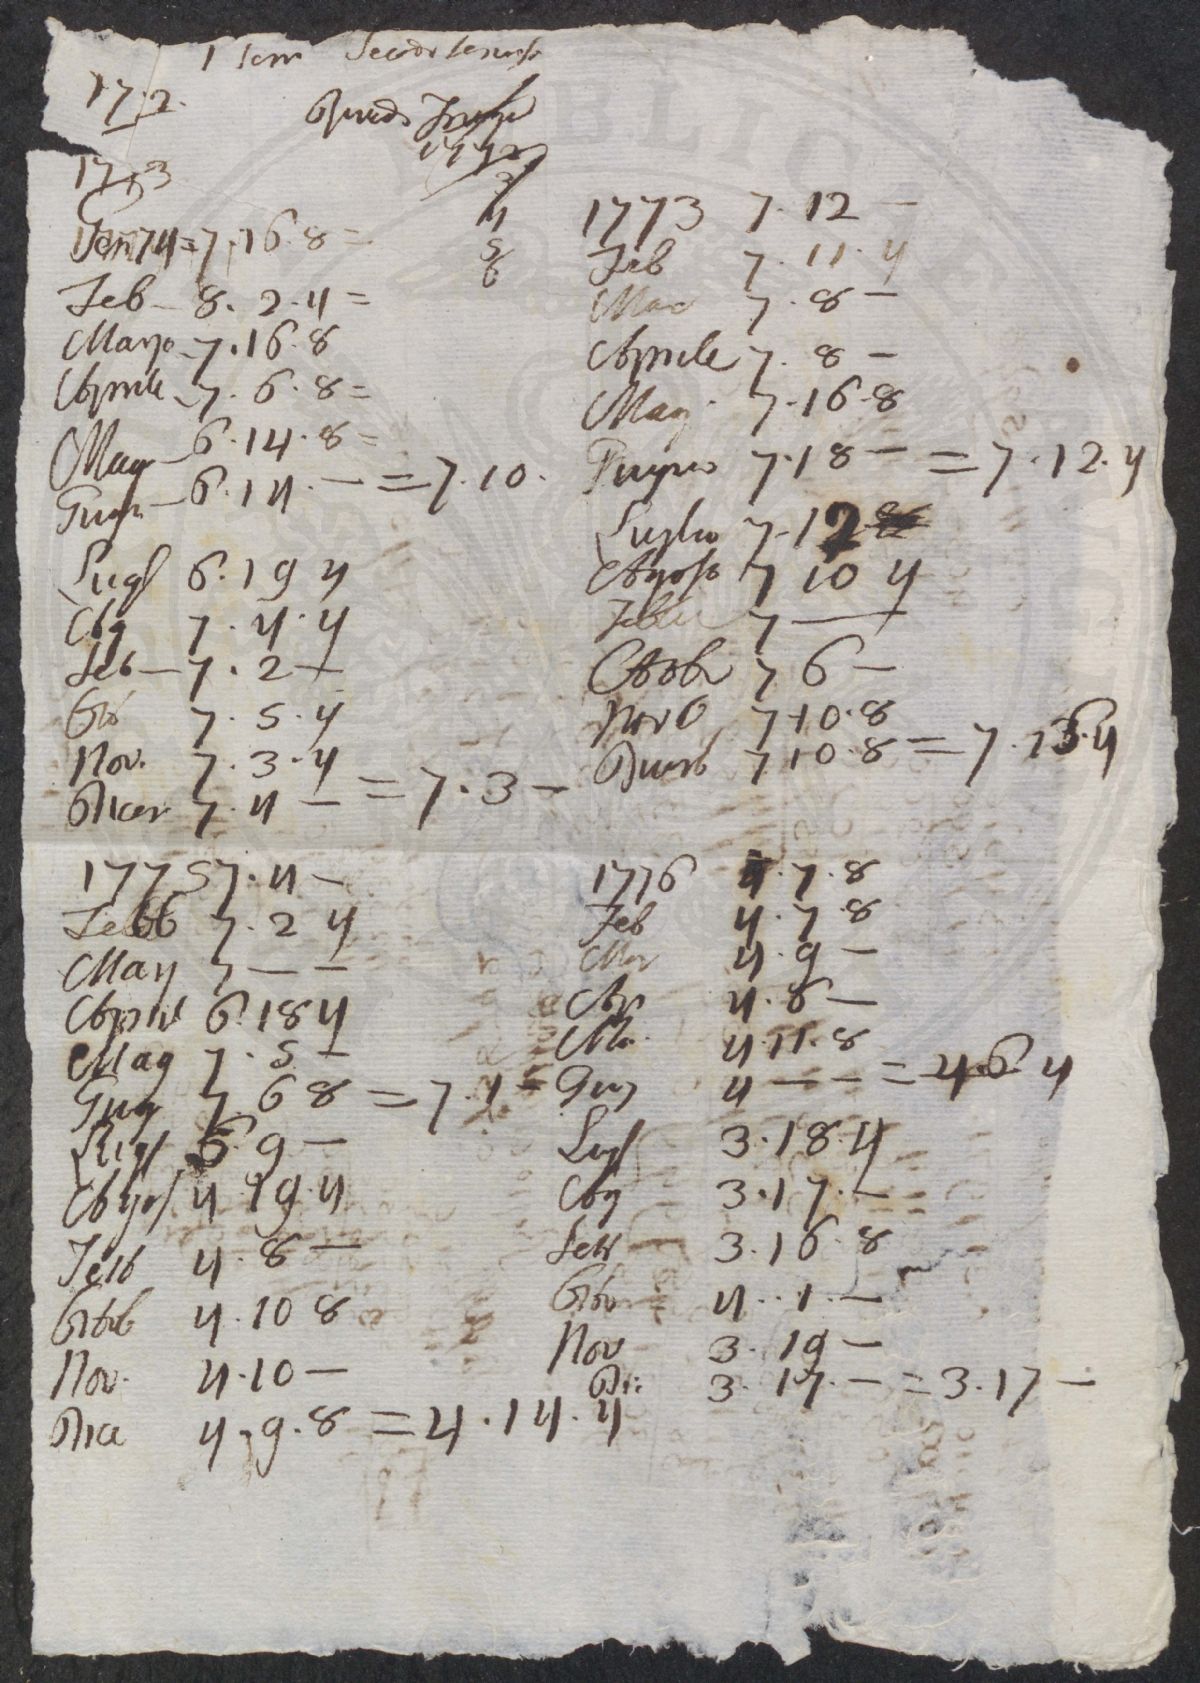 17.2.
1773
3
4
5
6
Gen 74 = 7.16.8 =
Feb - 8.2.4 =
Marzo - 7.16.8
Aprile - 7.6.8 =
Mag - 6.14.8 =
Giug - 6.14. - = 7.10.
Lugl 6.19 4
Ag 7.4.4
Seb - 7.2 -
Otb 7.5.4
Nov. 7.3.4
Dicer 7.4 - = 7.3 -
1773 7.12 -
Feb 7.11.4
Mar 7.8 -
Aprile 7.8 -
Mag. 7.16.8
Giugno 7.18 - = 7.12.4
Luglio 7.12
Agosto 7 10 4
7 -
Ottobr 7 6 -
Novb 7 10.8
Dicemb 7 10.8 = 7.13.4
1775 7.4 -
Febb 7.2 4
Marz 7 - -
April 6.18 4
Mag 7.5 -
Giug 7.6 8 = 7.1 -
Lugl 5.9 -
Agos 4.19.4
Setb 4.8 -
Ottob 4.10 8
Nov. 4.10 -
Dice 4.9.8 = 4.14.4
1776 4.7.8
Feb 4.7.8
Mar 4.9 -
Ap 4.8 -
Ma. 4.11.8
Giug 4 - - = 4.6 4
Lugl 3.18.4
Ag 3.17. -
Setb 3.16.8
Otbr 4..1. -
Nov 3.19 -
Di: 3.17. - = 3.17 -